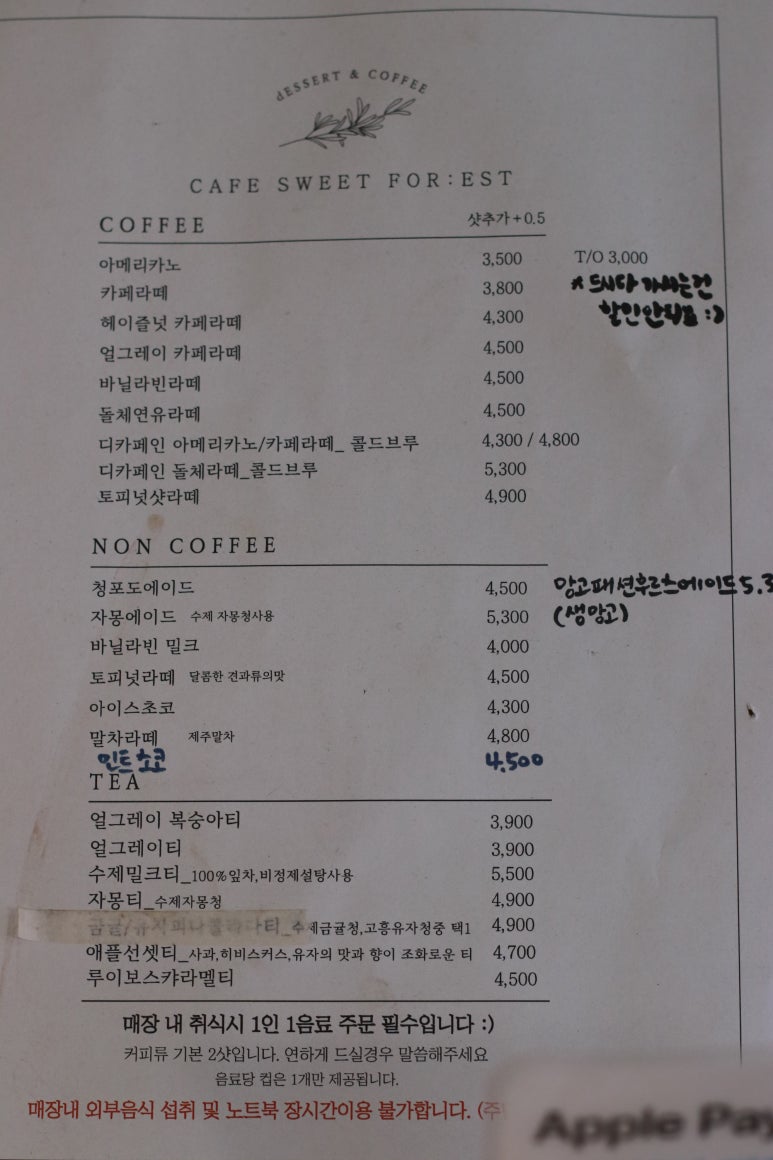 dESSERT & COFFEE
CAFE SWEET FOR:EST
COFFEE 샷추가+0.5
아메리카노 3,500 T/O 3,000
카페라떼 3,800 * 드시다 가시는건
헤이즐넛 카페라떼 4,300 할인안돼요 :)
얼그레이 카페라떼 4,500
바닐라빈라떼 4,500
돌체연유라떼 4,500
디카페인 아메리카노/카페라떼_ 콜드브루 4,300 / 4,800
디카페인 돌체라떼_콜드브루 5,300
토피넛샷라떼 4,900
NON COFFEE
청포도에이드 4,500 망고패션후르츠에이드 5.3
자몽에이드 수제 자몽청사용 5,300 (생망고)
바닐라빈 밀크 4,000
토피넛라떼 달콤한 견과류의맛 4,500
아이스초코 4,300
말차라떼 제주말차 4,800
민트초코 4.500
TEA
얼그레이 복숭아티 3,900
얼그레이티 3,900
수제밀크티_100%잎차,비정제설탕사용 5,500
자몽티_수제자몽청 4,900
수제금귤청,고흥유자청중 택1 4,900
애플선셋티_사과,히비스커스,유자의 맛과 향이 조화로운 티 4,700
루이보스캬라멜티 4,500
매장 내 취식시 1인 1음료 주문 필수입니다 :)
커피류 기본 2샷입니다. 연하게 드실경우 말씀해주세요
음료당 컵은 1개만 제공됩니다.
매장내 외부음식 섭취 및 노트북 장시간이용 불가합니다. (주
Apple Pay